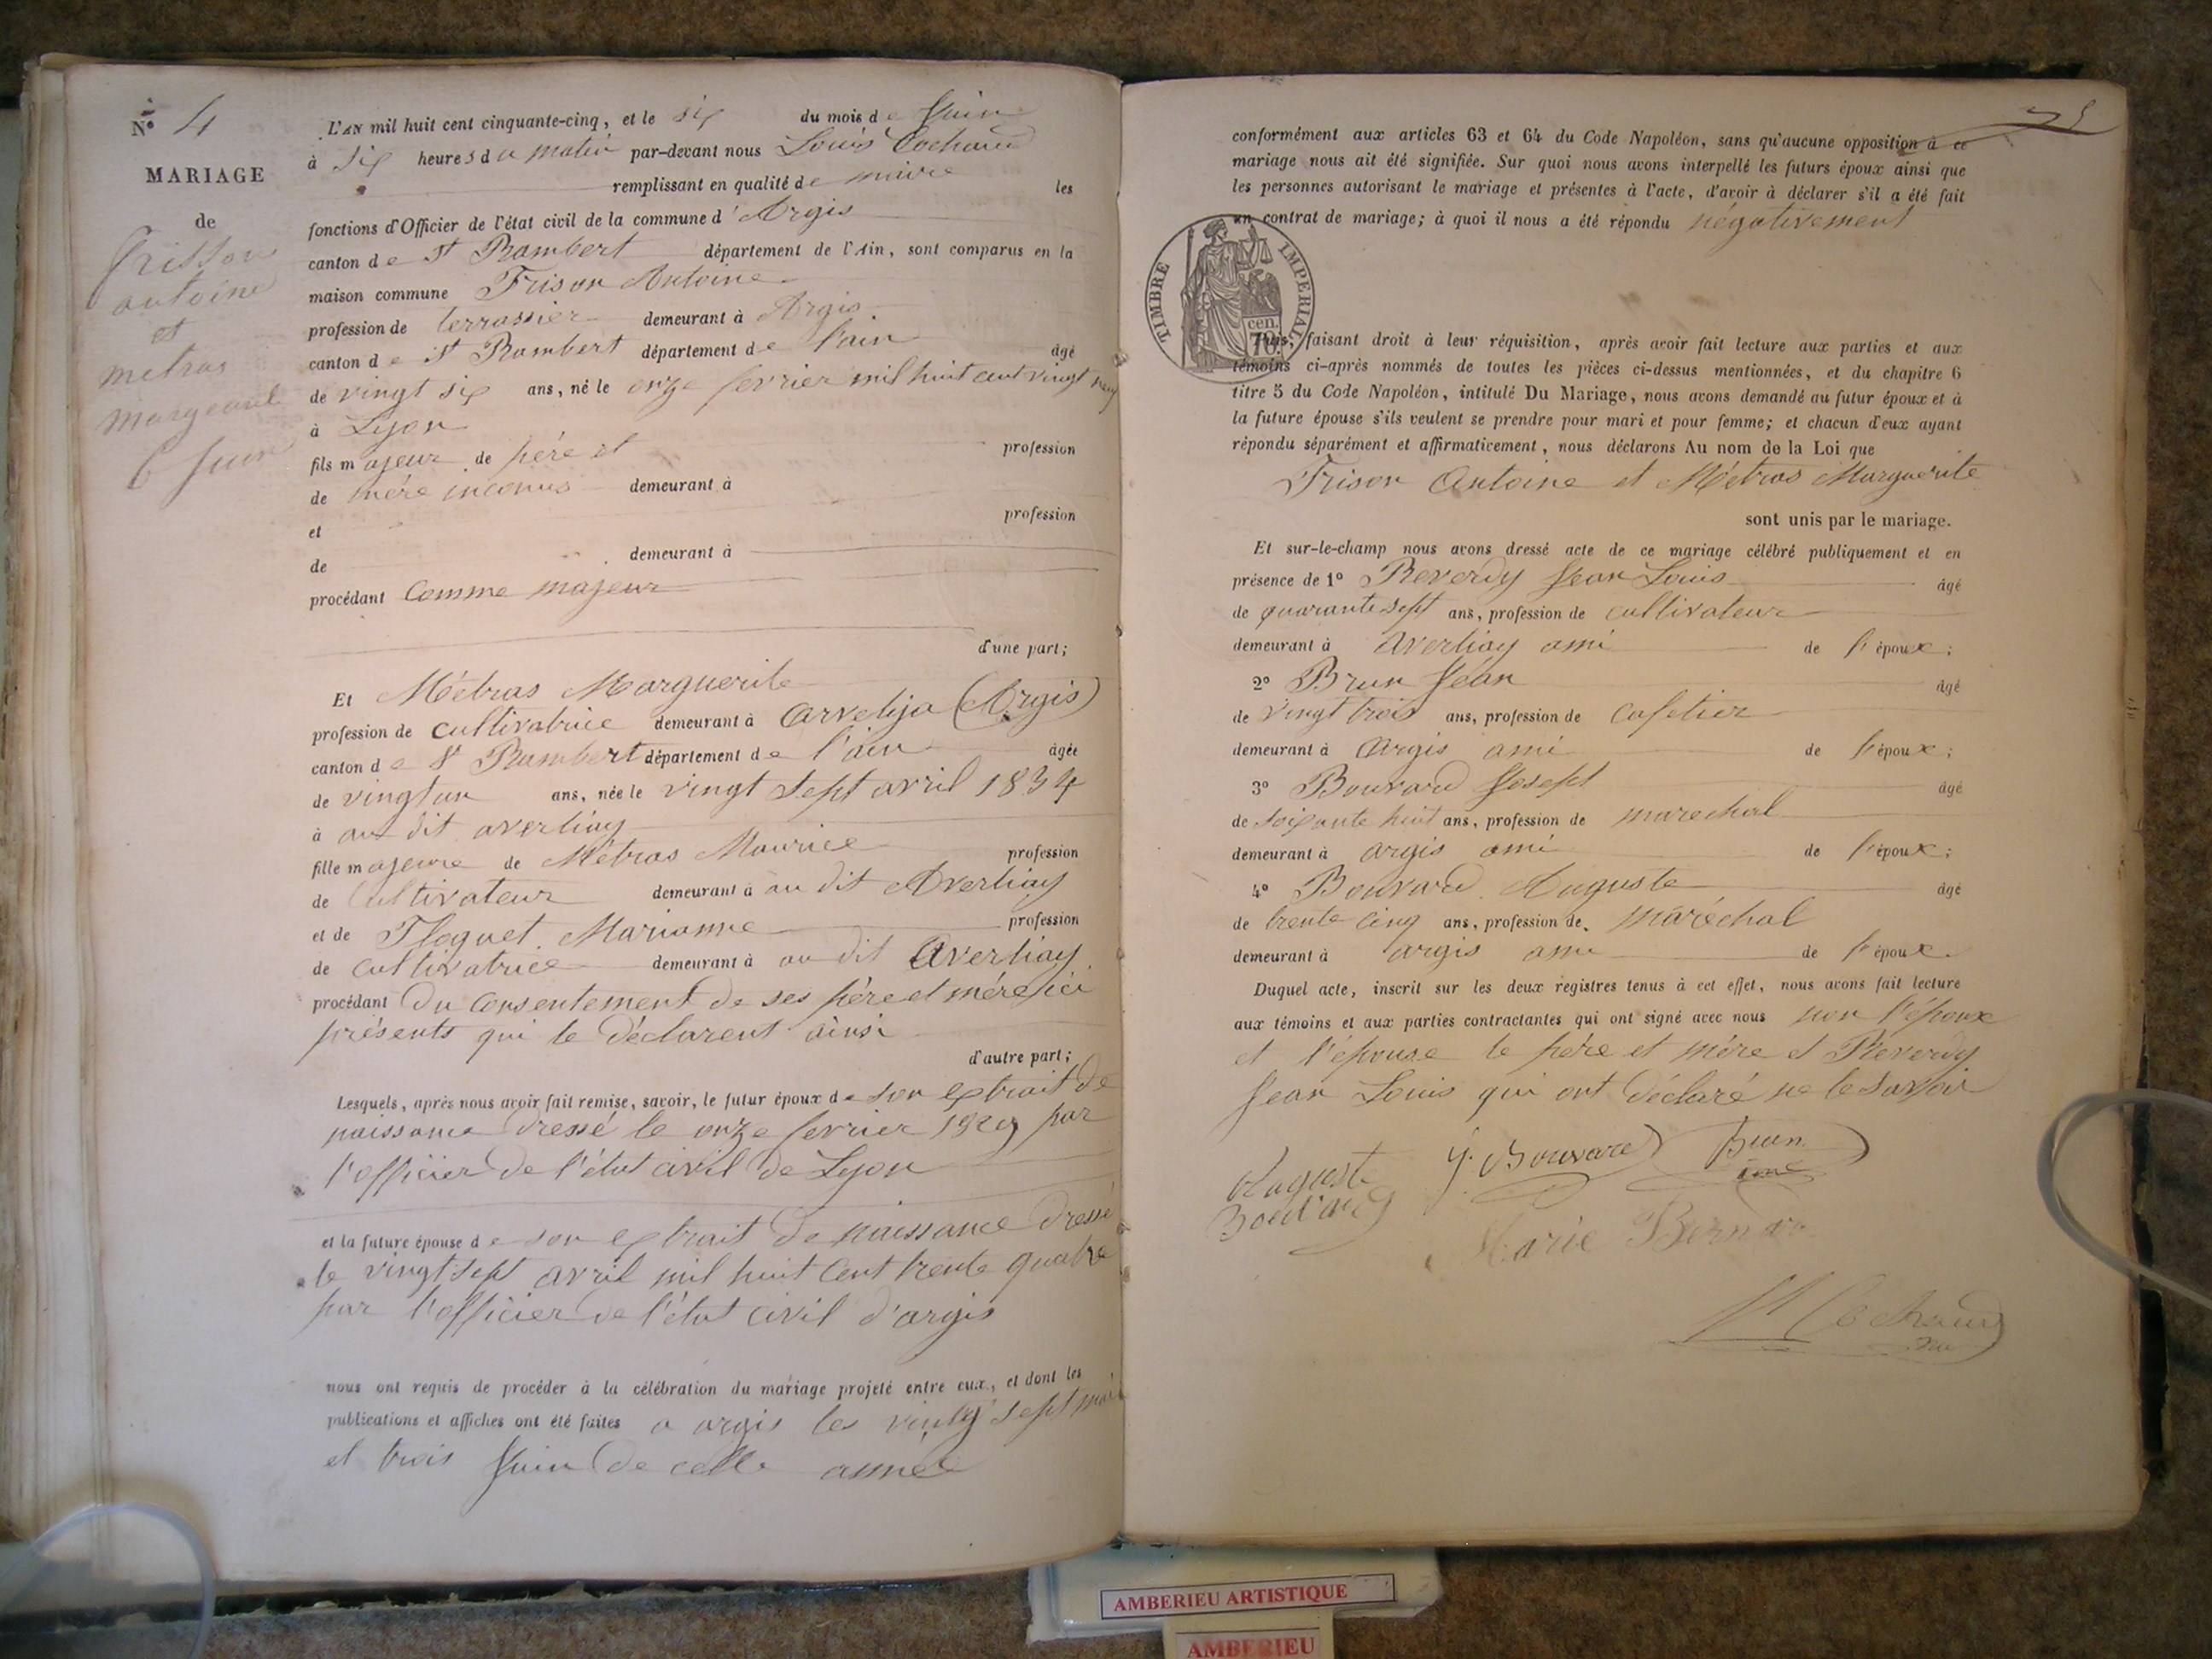 N° 4
MARIAGE
de
Frisson
antoine
et
metras
6 Juin
L'AN mil huit cent cinquante-cinq, et le six du mois de Juin
à six heures du matin par-devant nous Louis Cochaud
remplissant en qualité de maire les
fonctions d'Officier de l'état civil de la commune d'Argis
canton de St Rambert département de l'Ain, sont comparus en la
maison commune Frison Antoine
profession de terrassier demeurant à Argis
canton de St Rambert département de l'ain âgé
de vingt six ans, né le onze fevrier mil huit cent vingt neuf
à Lyon
fils majeur de père et profession
de mère inconnus demeurant à
et profession
de demeurant à
procédant Comme majeur
d'une part;
Et Métras Marguerite
profession de cultivatrice demeurant à (Argis)
canton de St Rambert département de l'ain âgée
de vingt un ans, née le vingt sept avril 1834
à au dit averliay
fille majeure de Métras Maurice profession
de Cultivateur demeurant à au dit Averliay
et de Floquet Marianne profession
de cultivatrice demeurant à au dit Averliay
procédant du Consentement de ses père et mère ici
présents qui le déclarent ainsi
d'autre part;
Lesquels, après nous avoir fait remise, savoir, le futur époux de son extrait de
naissance dressé le onze fevrier 1829 par
l'officier de l'état civil de Lyon
et la future épouse de son extrait de naissance dressé
le vingt sept avril mil huit cent trente quatre
par l'officier de l'état civil d'argis
nous ont requis de procéder à la célébration du mariage projeté entre eux, et dont les
publications et affiches ont été faites a argis les vingt sept mai
et trois Juin de cette année
conformément aux articles 63 et 64 du Code Napoléon, sans qu'aucune opposition à ce
mariage nous ait été signifiée. Sur quoi nous avons interpellé les futurs époux ainsi que
les personnes autorisant le mariage et présentes à l'acte, d'avoir à déclarer s'il a été fait
un contrat de mariage; à quoi il nous a été répondu négativement
TIMBRE IMPERIAL
cen.
70
Puis, faisant droit à leur réquisition, après avoir fait lecture aux parties et aux
témoins ci-après nommés de toutes les pièces ci-dessus mentionnées, et du chapitre 6
titre 5 du Code Napoléon, intitulé Du Mariage, nous avons demandé au futur époux et à
la future épouse s'ils veulent se prendre pour mari et pour femme; et chacun d'eux ayant
répondu séparément et affirmativement, nous déclarons Au nom de la Loi que
Frison Antoine et Métras Marguerite
sont unis par le mariage.
Et sur-le-champ nous avons dressé acte de ce mariage célébré publiquement et en
présence de 1° Reverdy Jean Louis âgé
de quarante sept ans, profession de cultivateur
demeurant à Averliay ami de l'époux;
2° Brun Jean âgé
de vingt trois ans, profession de cafetier
demeurant à Argis ami de l'époux;
3° Bouvard Joseph âgé
de soixante huit ans, profession de marechal
demeurant à argis ami de l'époux;
4° Bouvard Auguste âgé
de trente cinq ans, profession de maréchal
demeurant à argis ami de l'époux
Duquel acte, inscrit sur les deux registres tenus à cet effet, nous avons fait lecture
aux témoins et aux parties contractantes qui ont signé avec nous non l'époux
et l'épouse le père et mère et Reverdy
Jean Louis qui ont déclaré ne le savoir
Auguste
Bouvard
J. Bouvard
Brun
Marie Bernard
Cochaud
AMBERIEU ARTISTIQUE
AMBERIEU